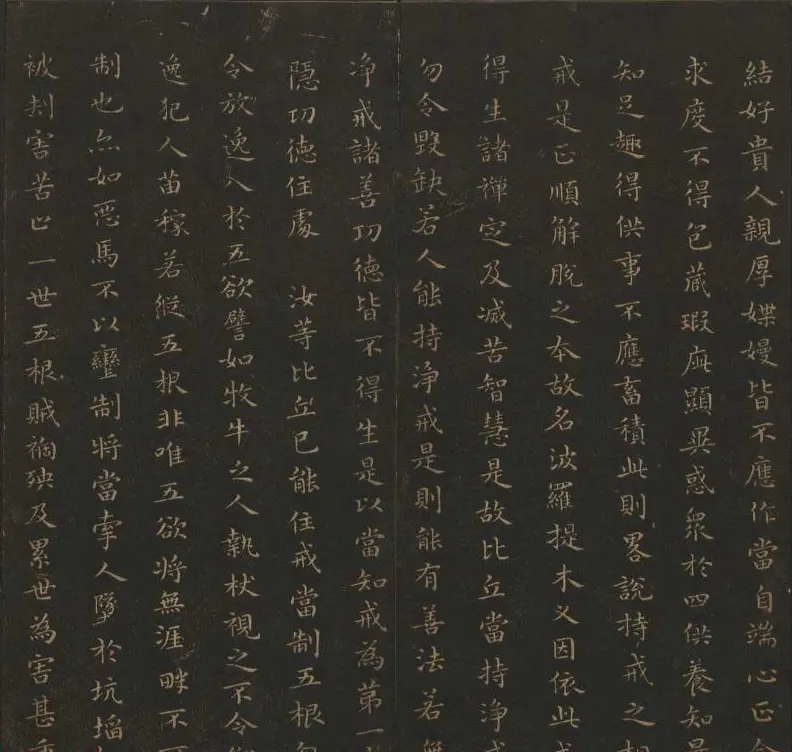 結好貴人親厚媟嫚皆不應作當自端心正念
求度不得包藏瑕疵顯異惑衆於四供養知量
知足趣得供事不應畜積此則畧說持戒之相
戒是正順解脫之本故名波羅提木叉因依此戒
得生諸禪定及滅苦智慧是故比丘當持淨戒
勿令毀缺若人能持淨戒是則能有善法若無
淨戒諸善功德皆不得生是以當知戒為第一安
隱功德住處 汝等比丘已能住戒當制五根勿
令放逸入於五欲譬如牧牛之人執杖視之不令縱
逸犯人苗稼若縱五根非唯五欲將無涯畔不可
制也亦如惡馬不以轡制將當牽人墜於坑埳
被刦害苦止一世五根賊禍殃及累世為害甚重